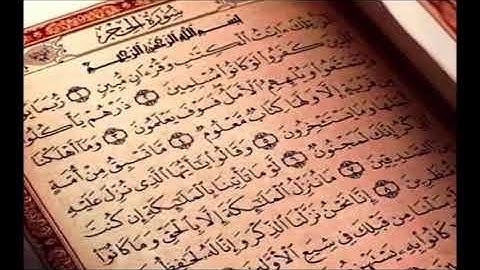 سُورَةُ الحِجْرِ
بِسْمِ اللَّهِ الرَّحْمَٰنِ الرَّحِيمِ
تِلْكَ ءَايَٰتُ الْكِتَٰبِ وَقُرْءَانٍ مُّبِينٍ ۝ رُّبَمَا يَوَدُّ
الَّذِينَ كَفَرُوا لَوْ كَانُوا مُسْلِمِينَ ۝ ذَرْهُمْ يَأْكُلُوا
وَيَتَمَتَّعُوا وَيُلْهِهِمُ الْأَمَلُ فَسَوْفَ يَعْلَمُونَ ۝ وَمَا أَهْلَكْنَا
مِن قَرْيَةٍ إِلَّا وَلَهَا كِتَابٌ مَّعْلُومٌ ۝ مَّا تَسْبِقُ مِنْ أُمَّةٍ
أَجَلَهَا وَمَا يَسْتَـْٔخِرُونَ ۝ وَقَالُوا يَٰأَيُّهَا الَّذِي نُزِّلَ عَلَيْهِ
الذِّكْرُ إِنَّكَ لَمَجْنُونٌ ۝ لَّوْ مَا تَأْتِينَا بِالْمَلَٰٓئِكَةِ إِن كُنتَ
الصَّٰدِقِينَ ۝ مَا نُنَزِّلُ الْمَلَٰٓئِكَةَ إِلَّا بِالْحَقِّ وَمَا كَانُوا
مُّنظَرِينَ ۝ إِنَّا نَحْنُ نَزَّلْنَا الذِّكْرَ وَإِنَّا لَهُ لَحَٰفِظُونَ
أَرْسَلْنَا مِن قَبْلِكَ فِي شِيَعِ الْأَوَّلِينَ
كَانُوا بِهِ